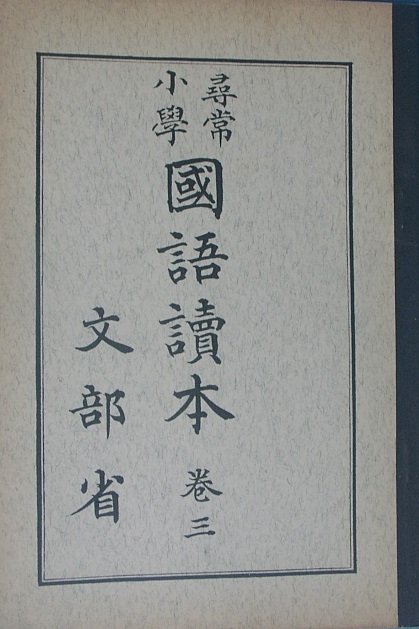 尋常
小學
國語讀本 卷三
文部省